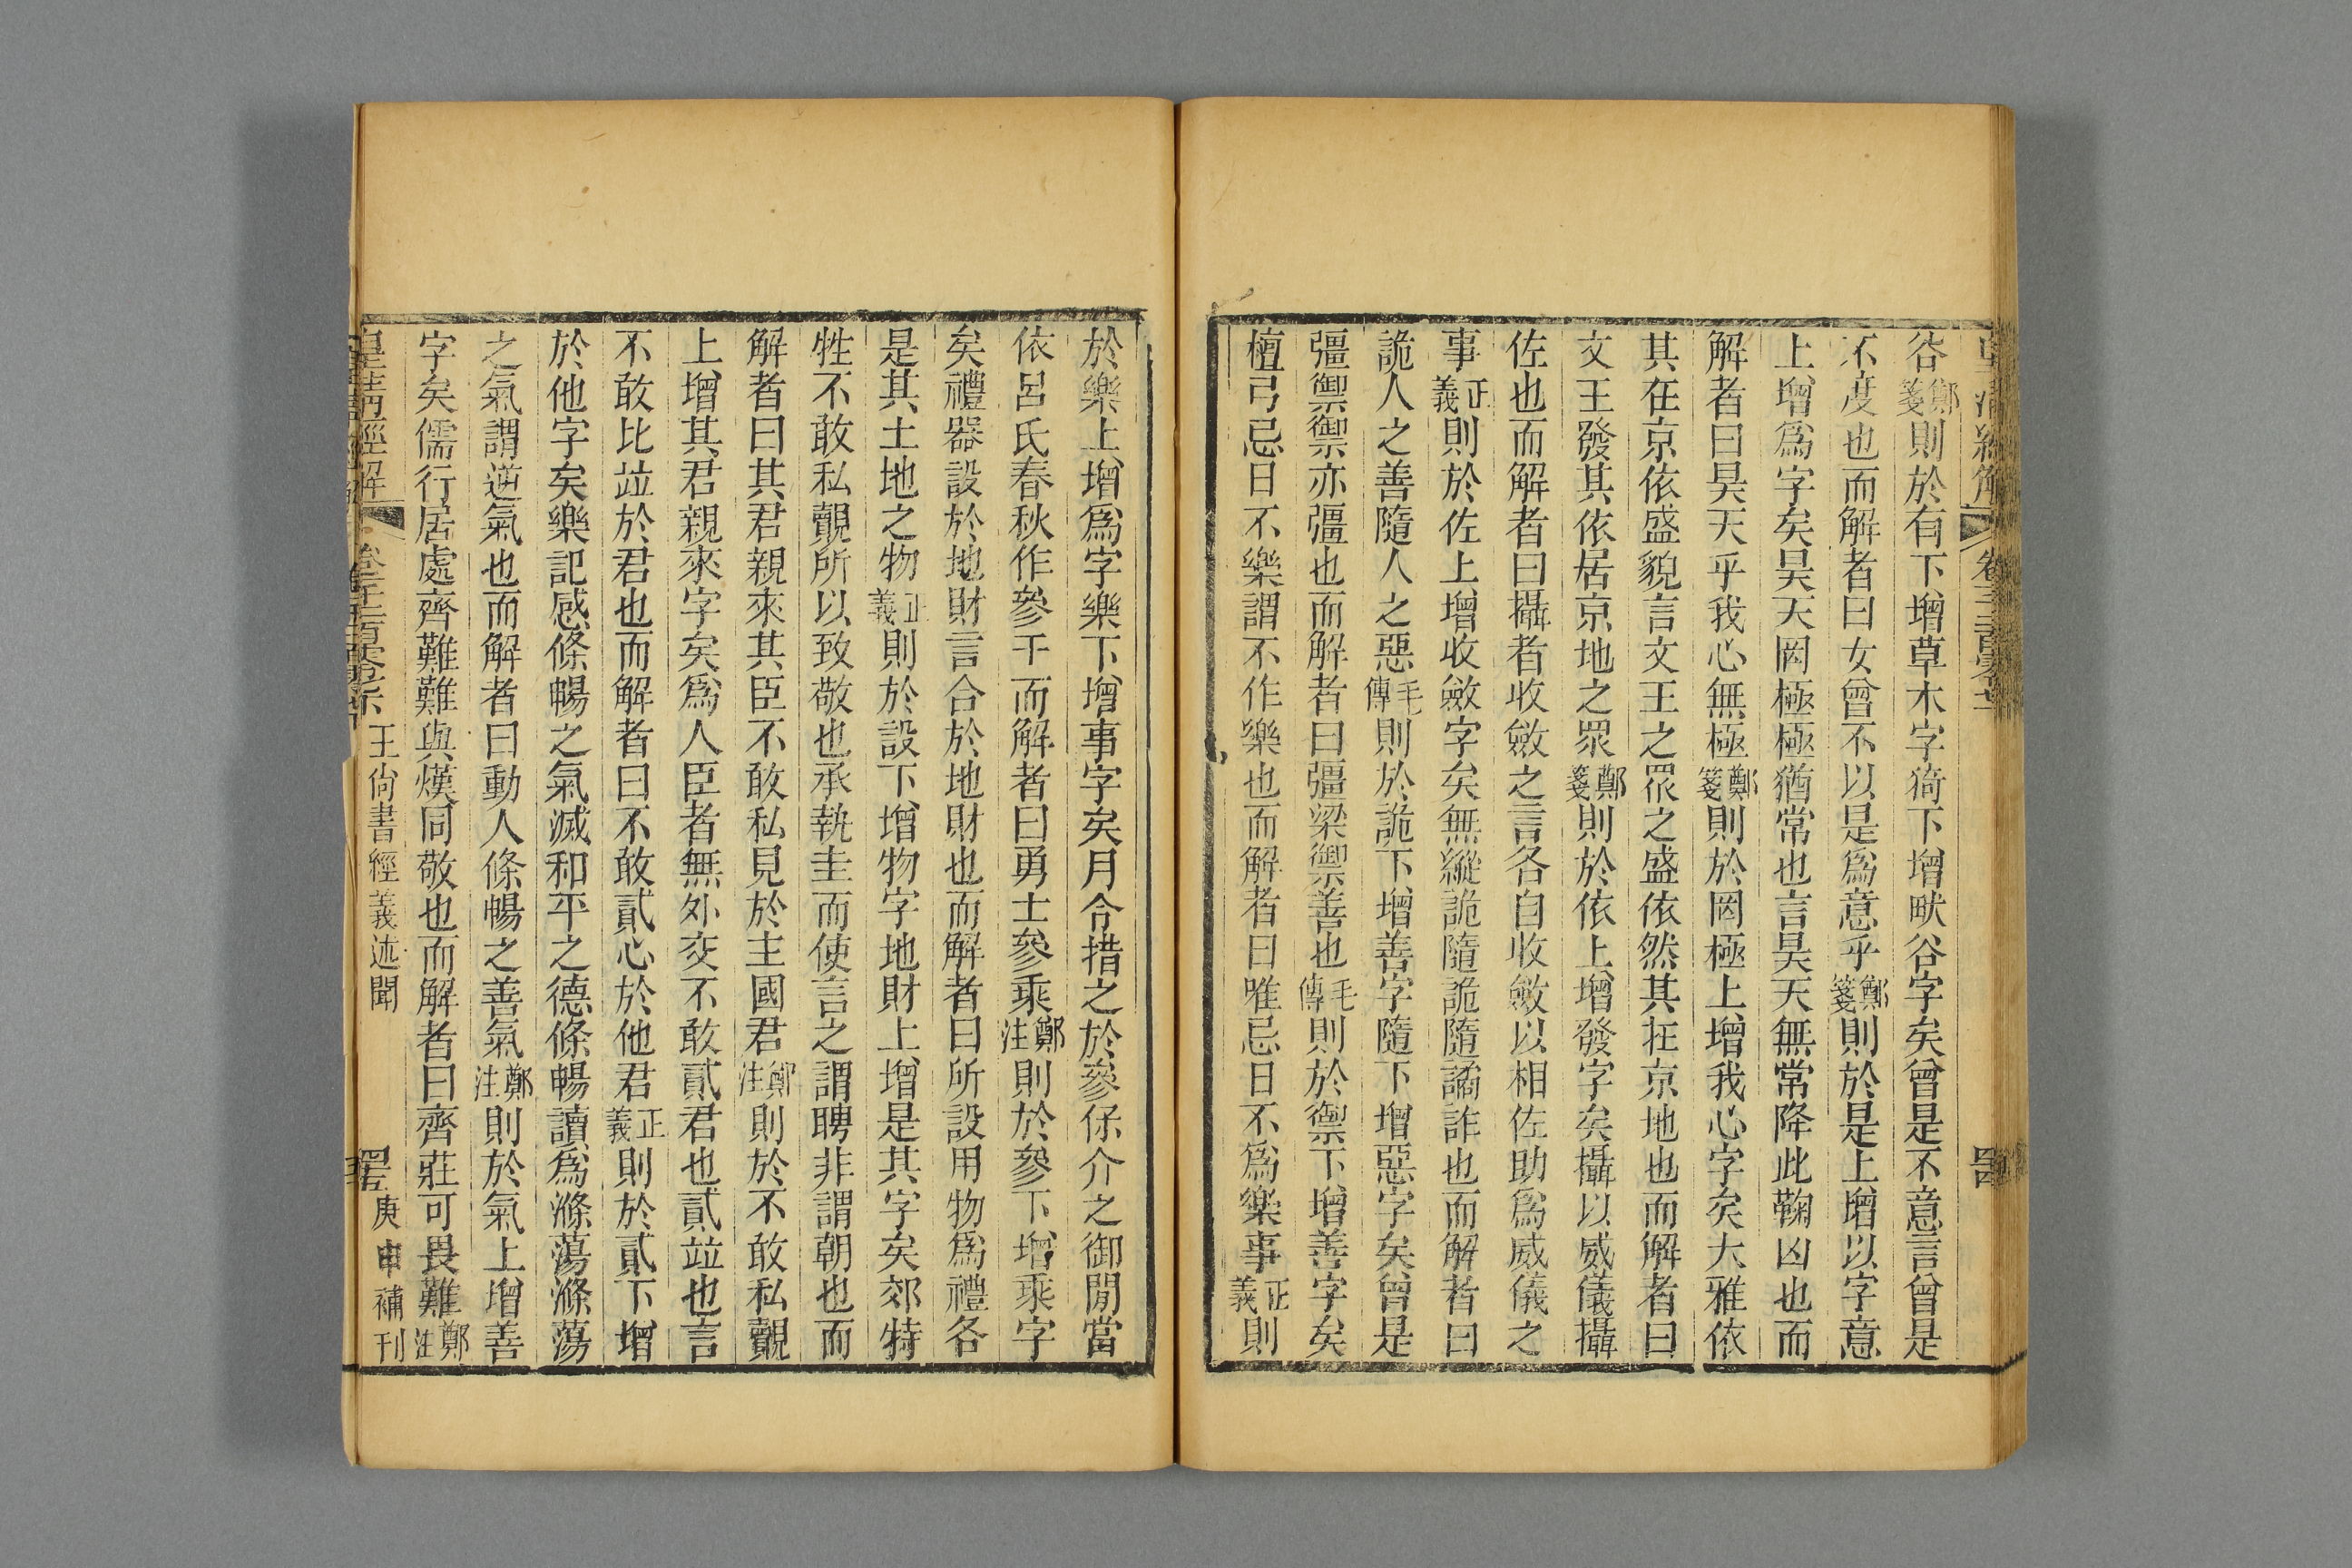 谷鄭箋則於有下增草木字猗下增畎谷字矣曾是不意言曾是
不度也而解者曰女曾不以是爲意乎鄭箋則於是上增以字意
上增爲字矣昊天罔極極猶常也言昊天無常降此鞠凶也而
解者曰昊天乎我心無極鄭箋則於罔極上增我心字矣大雅依
其在京依盛貌言文王之眾之盛依然其在京地也而解者曰
文王發其依居京地之眾鄭箋則於依上增發字矣攝以威儀攝
佐也而解者曰攝者收斂之言各自收斂以相佐助爲威儀之
事正義則於佐上增收斂字矣無縱詭隨詭隨譎詐也而解者曰
詭人之善隨人之惡毛傳則於詭下增善字隨下增惡字矣曾是
彊禦禦亦彊也而解者曰彊梁禦善也毛傳則於禦下增善字矣
檀弓忌日不樂謂不作樂也而解者曰唯忌日不爲樂事正義則
於樂上增爲字樂下增事字矣月令措之於參保介之御閒當
依呂氏春秋作參于而解者曰勇士參乘鄭注則於參下增乘字
矣禮器設於地財言合於地財也而解者曰所設用物爲禮各
是其土地之物正義則於設下增物字地財上增是其字矣郊特
牲不敢私覿所以致敬也承執圭而使言之謂聘非謂朝也而
解者曰其君親來其臣不敢私見於主國君鄭注則於不敢私覿
上增其君親來字矣爲人臣者無外交不敢貳君也貳竝也言
不敢比竝於君也而解者曰不敢貳心於他君正義則於貳下增
於他字矣樂記感條暢之氣滅和平之德條暢讀爲滌蕩滌蕩
之氣謂逆氣也而解者曰動人條暢之善氣鄭注則於氣上增善
字矣儒行居處齊難難與熯同敬也而解者曰齊莊可畏難鄭注
皇清經解 王尙書經義述聞 庚申補刊